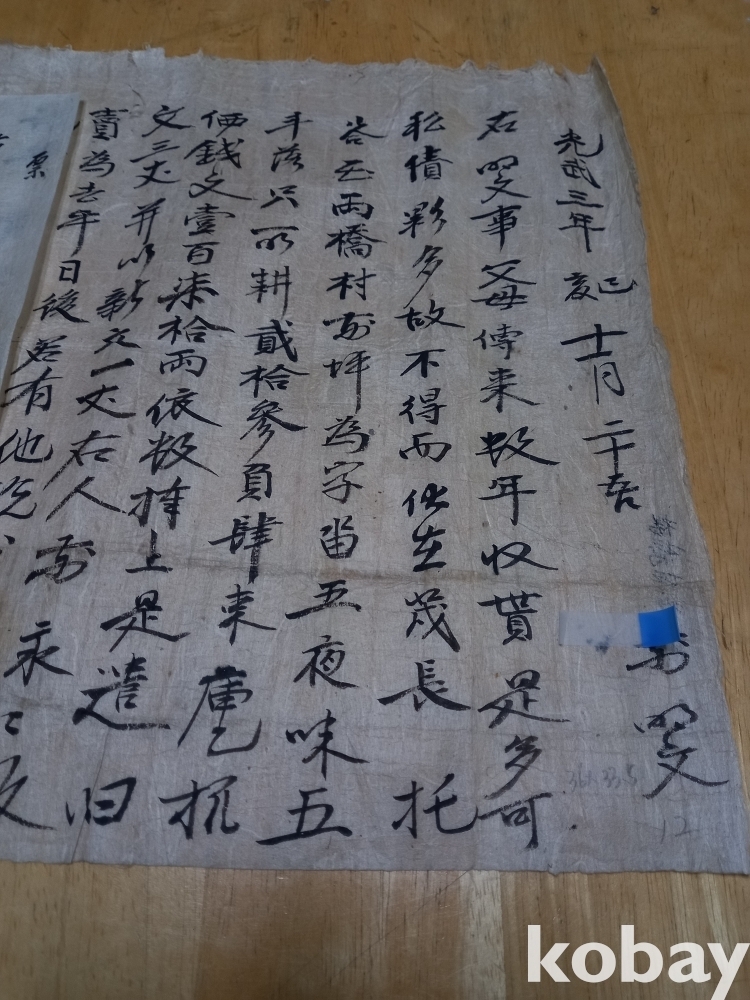 光武三年己亥十二月二十五日 前明文
右明文事父母傳來数年收貰是多可
私債夥多故不得而伏在茂長 托
谷面兩橋村前坪為字畓五夜味五
斗落只所耕貳拾參負肆束庫乙折
価錢文壹百柒拾兩依数捧上是遣旧
文三丈并以新文一丈右人前永々放
賣為去乎日後若有他說
票
kobay